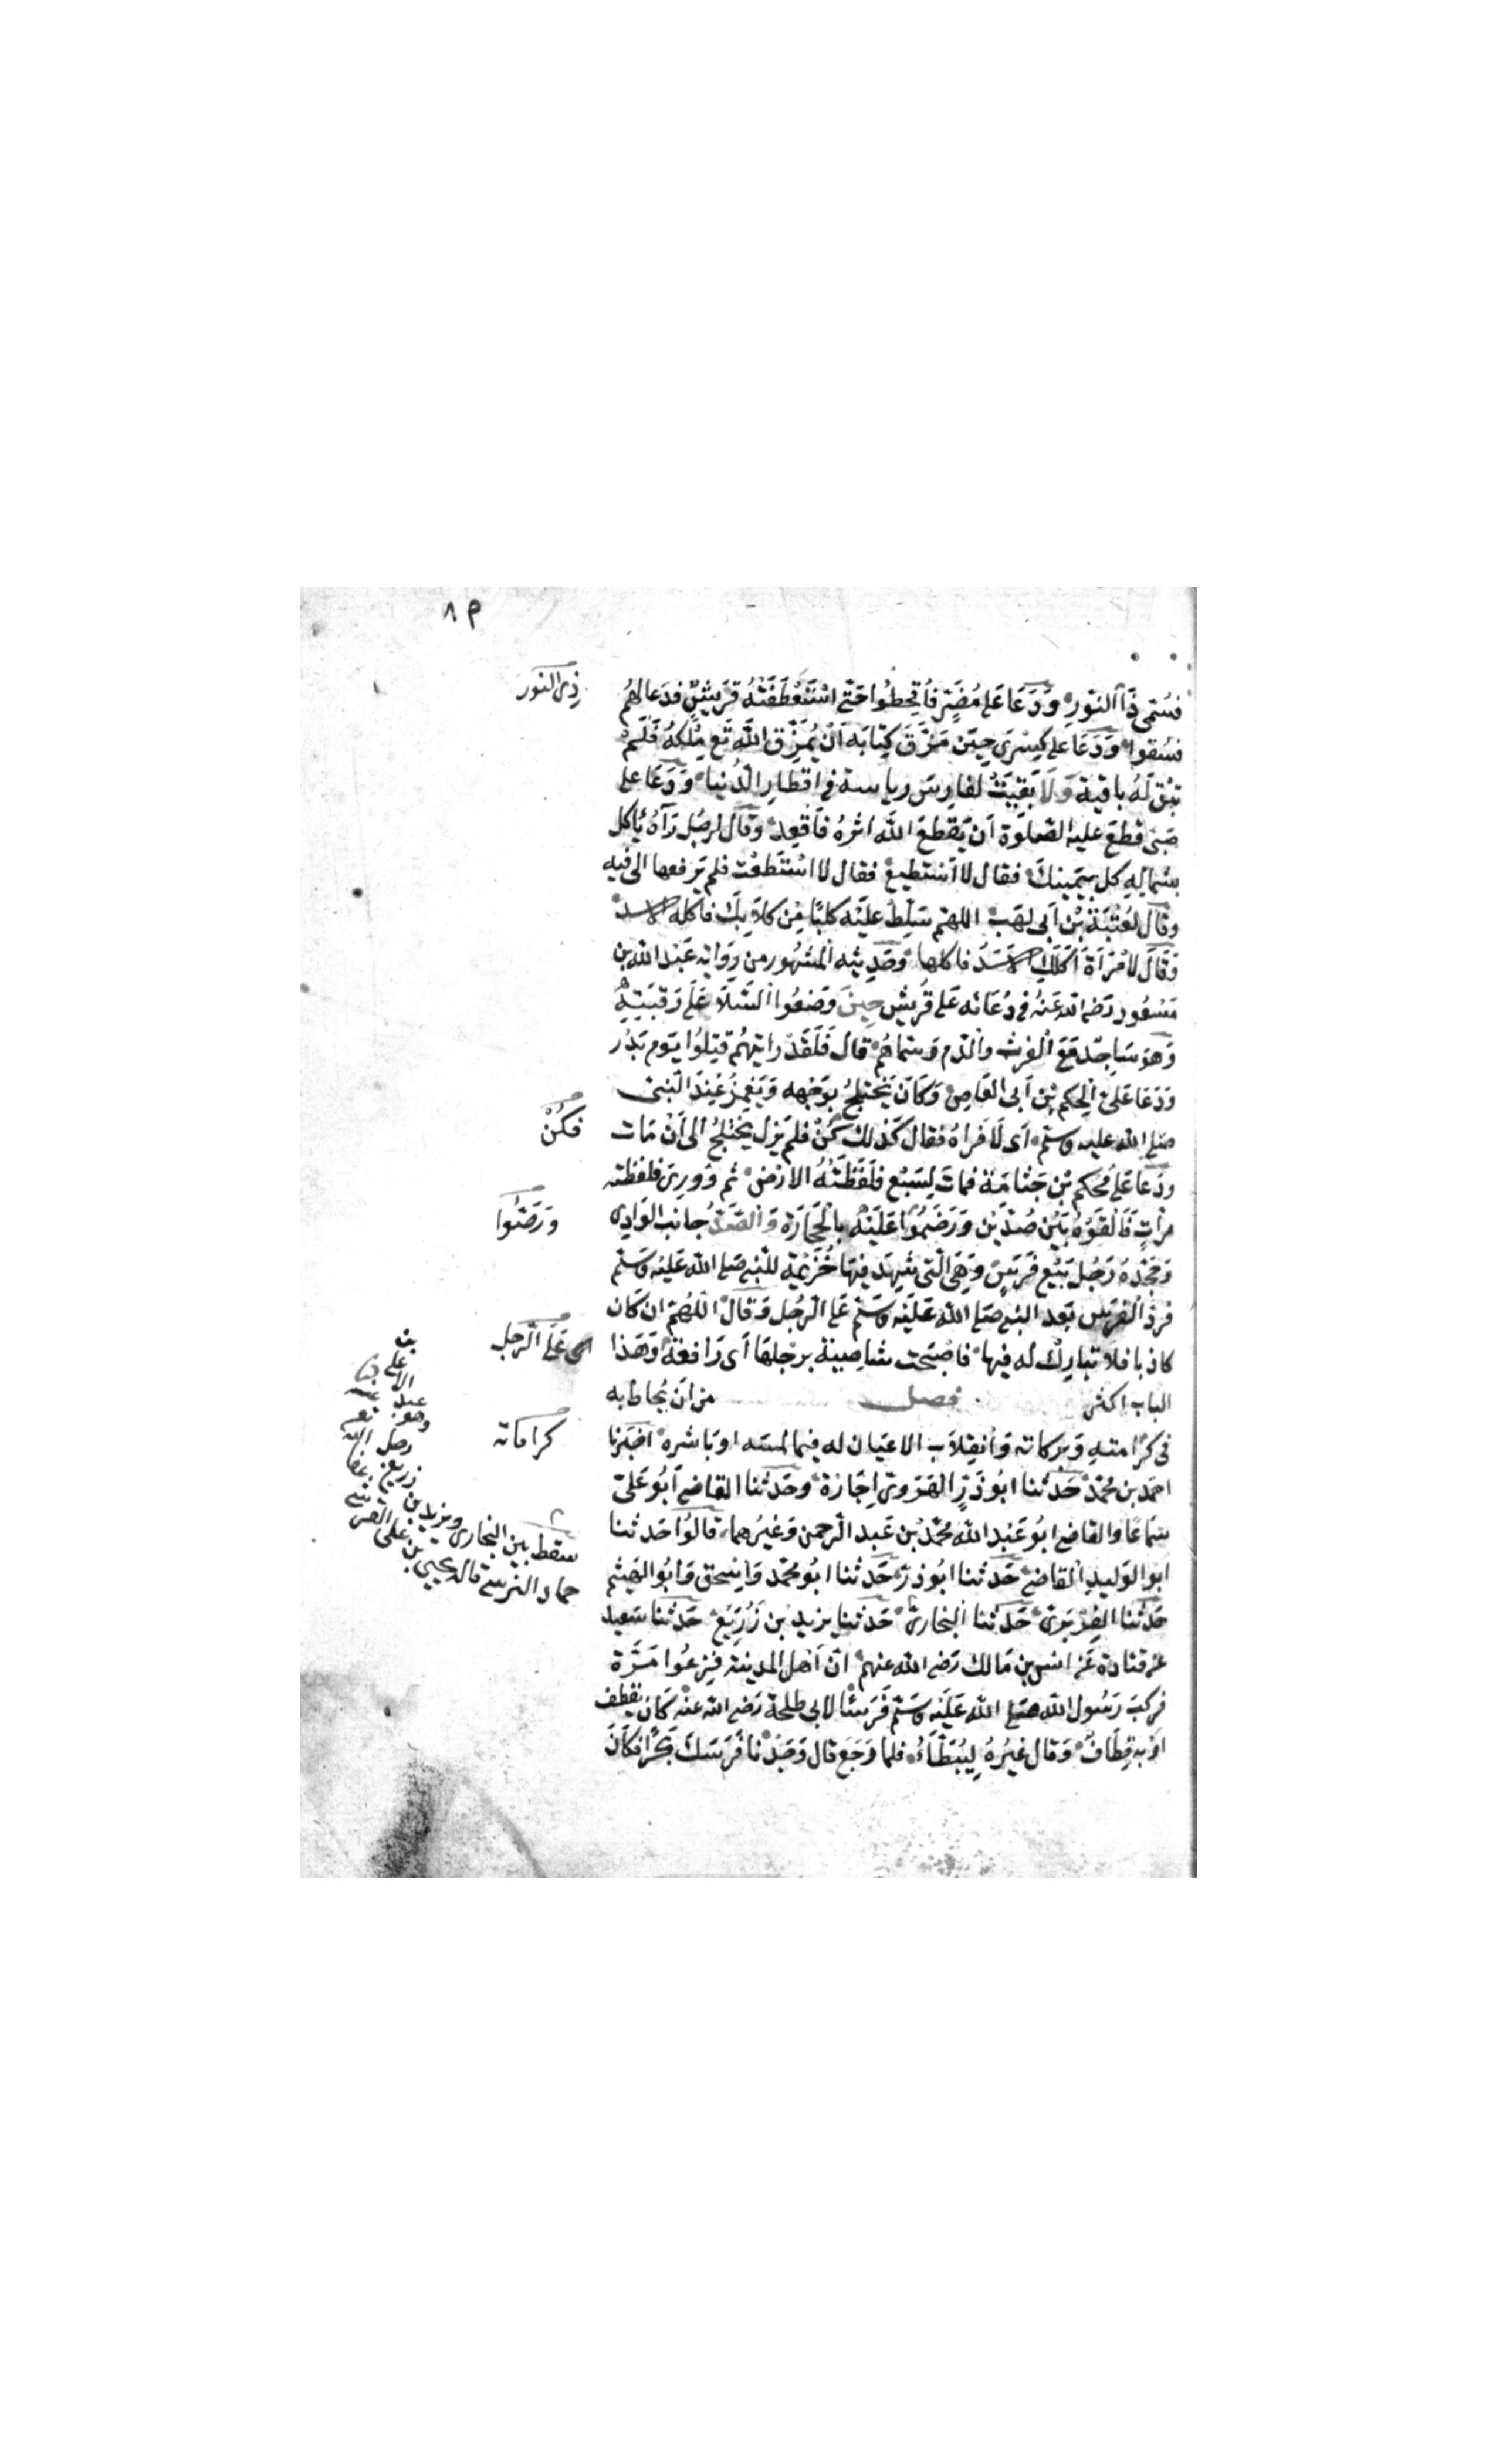 ٨٩
فسُمّى ذَا النّورِ وَدَعَا عَلى مُضَرَ فأُقحِطُوا حَتّى اسْتَعْطَفَتْهُ قُرَيشٌ فدَعا لهُم
ذى النور
فسُقوا وَدَعَا على كِسْرى حِين مَزَّقَ كِتَابَه اَنْ يُمَزِّقَ اللّٰه تَع مُلكَهُ فَلَمْ
تبْقَ لَهُ باقية وَلَا بَقِيَتْ لفارسَ رياسة فى اقطارِ الدُّنيا وَدَعَا على
صَبى قطعَ عليه الصَّلوٰة اَن يَقْطعَ اللّٰه اثرهُ فَاُقعِد وَقَال لرجُل رَآهُ يَاْكل
بشمالِهِ كل بيَمِينكَ فقال لا اَسْتطِيعُ فقال لا اسْتَطَعْت فلم يَرفعها الى فيه
وقَال لعُتْبَةَ بْن اَبى لهَب اللهمّ سَلِّطْ عليْه كلبًا مِن كلابِكَ فاكله الاسد
وَقَالَ لامْرَاَةٍ اَكَلَكِ الاَسَدُ فاكلها وَحَدِيثه المشهُور من رِوَاية عَبْد اللّٰه بن
مَسْعُود رَضى اللّٰه عَنْهُ فى دُعَائه عَلى قُرَيش حِينَ وَضَعُوا السَّلَا عَلى رَقبَتِهِ
وَهوَ سَاجِدٌ مَعَ الفَرثِ والدّم وَسَماهُم قال فَلَقَدْ رايتهُم قُتِلُوا يَوم بَدْر
وَدَعَا عَلى الحكم بْن اَبى العَاصِ وَكَانَ يَخْتلِجُ بوَجْهه وَيَغمِزُ عِنْدَ النَّبى
صَلى اللّٰه عليه وسَلّم اَى لَا فرآهُ فقال كَذلك كُنْ فلم يَزل يَخْتلجُ الى اَنْ مَات
فكُنْ
ودَعَا عَلى مُحَكم بْن جَثامَة فمات لِسَبْع فلَفَظَتْهُ الارْضُ ثم وُورِىَ فلفظته
مرّاتٍ فَاَلقَوْهُ بَيْن صُدَّيْن وَرَضَمُوا عَلَيْه بالحِجَارَة وَالصَّدُّ جانب الوَادِى
وَرَضَوا
وَجَحَدَهُ رَجُل بَيْع فَرَسٍ وَهِىَ الَّتى شَهِدَ فيهَا خُزَيْمة للنَّبى صَلى اللّٰه عَليْه وسَلّم
فردّ الفرَس بَعد النَّبى صَلى اللّٰه عَلَيْه وسَلّم عَلى الرّجُل وَقَال اللّهُمّ ان كَان
كاذبا فلَا تبَارِكْ له فيها فاَصْبَحَت شاصِيَة برجْلهَا اَى رَافِعَة وَهَذا
عَلى الرّجل
الباب اكثر من اَن يُحاط به
فصل
فى كرامتهِ وَبركاته وَانقِلَابِ الاعيَان له فيما لمسَه اوبَاشره اخبَرنا
كراماته
احمَد بن محمّد حَدثنا ابُو ذَرٍّ الهَرَوىّ اِجَازة وحَدثنا القاضى اَبُو عَلىّ
سَماعًا والقاضى ابُو عَبْد اللّٰه محمّدُ بن عَبد الرّحمن وَغيْرُهما قالوُا حَدثنا
ابو الوَليدِ القاضى حَدثنا ابُو ذرّ حَدثنا ابُو محمّد وَاِسحق وَابُو الهَيثم
حَدثنا الفِرَبْرىّ حَدثنا البُخارىّ حَدثنا يزيد بن زُرَيْع حَدثنا سَعِيد
سقط بين البخارى ويزيد بن زريع
عبد الاعلى بن
حماد النرسى قاله يحيى بن على القرشى
عن قتادة عَن انس بن مَالك رَضى اللّٰه عنهم انّ اَهل المدينَة فزِعُوا مَرَّة
فركبَ رَسُول اللّٰه صَلى اللّٰه عَلَيْه وسَلّم فَرَسًا لابى طلحَة رَضى اللّٰه عنه كَان يقطف
اَوْ به قِطَاف وَقال غيرُهُ يُبَطَّاُ فلما رَجَع قال وَجَدْنا فَرَسَك بَحْرًا فكَان